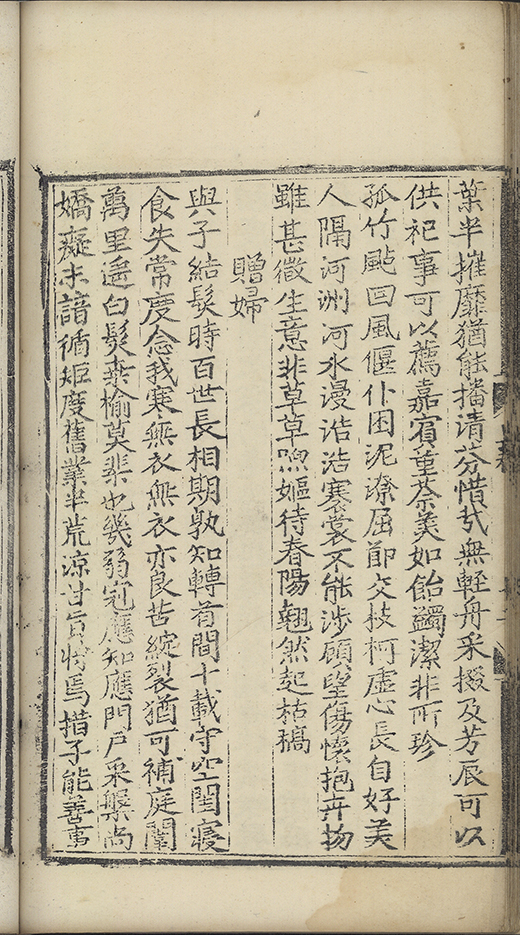 葉半摧靡猶能播清芬惜哉無輕舟采掇及芳辰可以
供祀事可以薦嘉賓堇荼美如飴蠲潔非所珍
孤竹颭回風偃仆困泥潦屈節交枝柯虛心長自好美
人隔河洲河水漫浩浩褰裳不能涉顧望傷懷抱卉物
雖甚微生意非草草喣嫗待春陽翹然起枯稿
贈婦
與子結髮時百世長相期孰知轉首間十載守空閨寢
食失常度念我寒無衣無衣亦良苦綻裂猶可補庭闈
萬里遥白髮桒榆莫棐也幾弱冠應知應門戶采蘩尚
嬌癡未諳循矩度舊業半荒涼甘旨將焉措子能善事